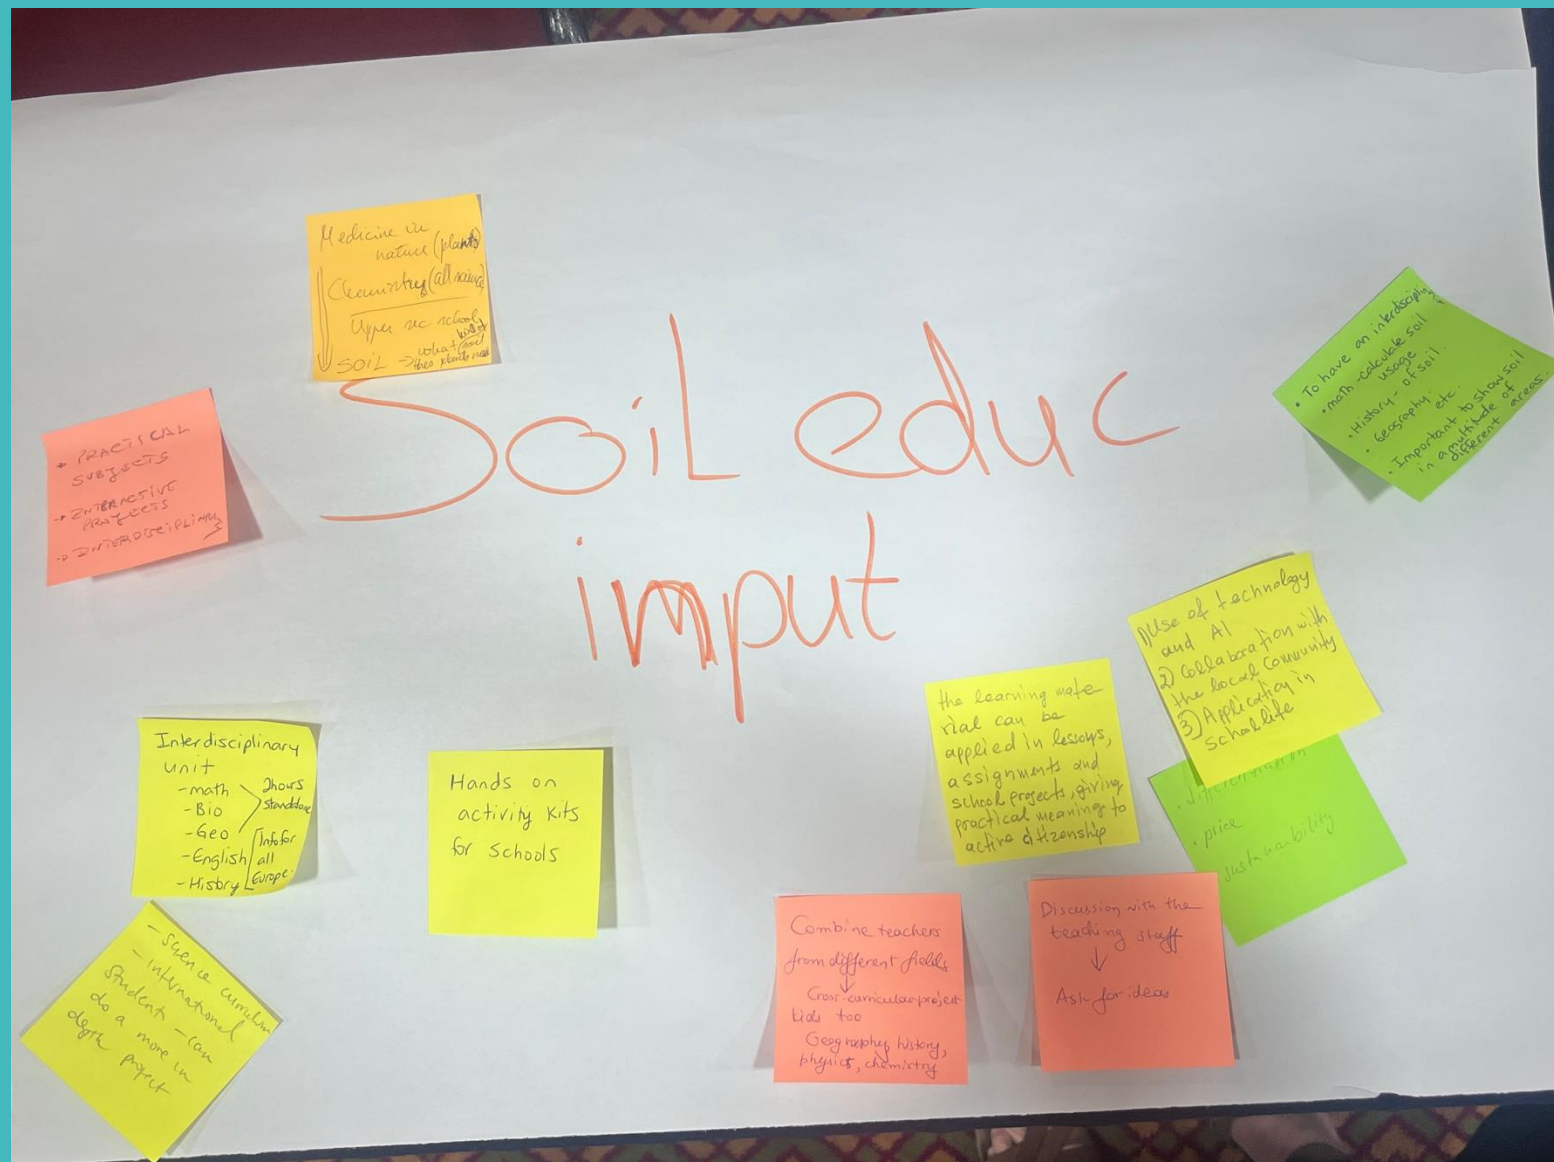 Soil educ
imput
Medicine in
nature (plants)
Chemistry (all science)
Upper sec school
SOIL → what kind of soil
thes plants need
• PRACTICAL
SUBJECTS
→ INTERACTIVE
PROJECTS
→ INTERDISCIPLINARY
• To have an interdisciplin
• math - calculate soil
usage
• History - of soil.
• Geography. etc.
• Important to show soil
in a multitude of
different areas.
1) Use of technology
and AI
2) Collaboration with
the local community
3) Application in
school life
the learning mate
rial can be
applied in lessons,
assignments and
school projects, giving
practical meaning to
active citizenship
• price
sustainability
Interdisciplinary
unit
- math 2hours
- Bio standalone
- Geo Info for
- English all
- History Europe.
Hands on
activity kits
for schools
- Science curriculum
- international
students - can
do a more in
depth project
Combine teachers
from different fields
↓
Cross-curricular project
kids too
Geography, history,
physics, chemistry
Discussion with the
teaching staff
↓
Ask for ideas